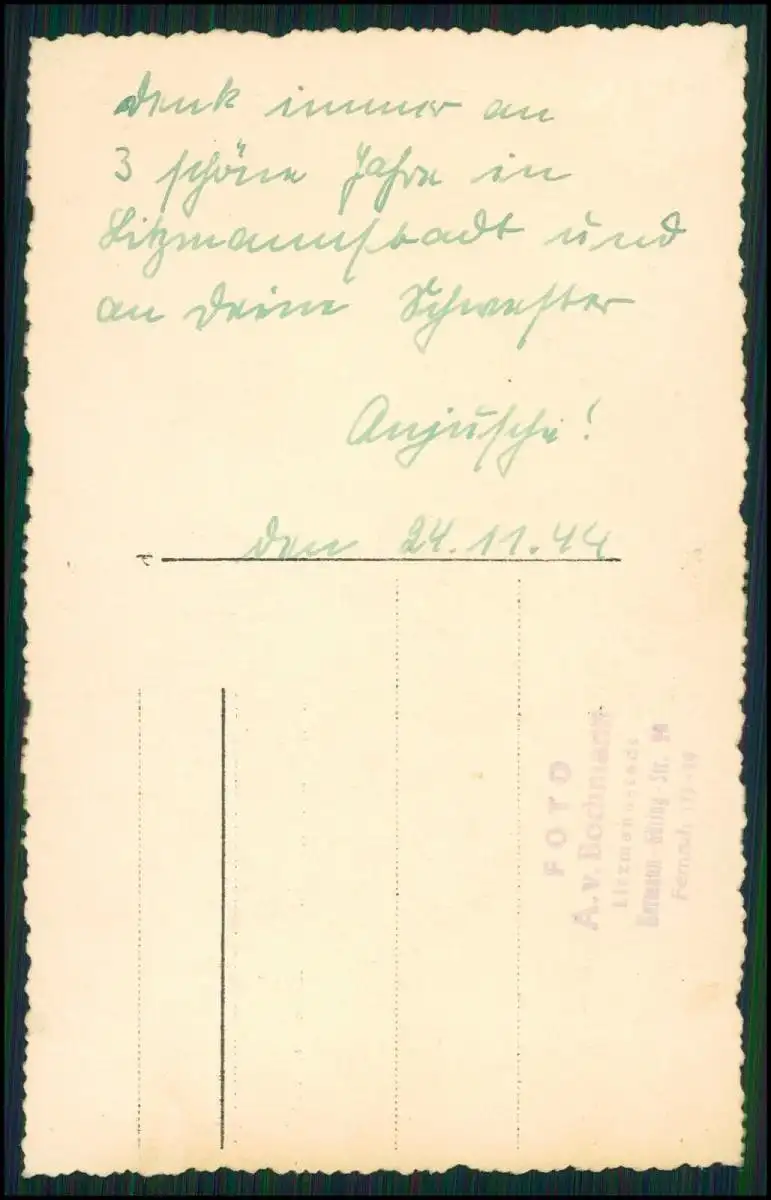 Denk immer an
3 schöne Jahre in
Litzmannstadt und
an Deine Schwester
Anjuscha!
den 24.11.44
FOTO
A. v. Bochmann
Litzmannstadt
Hermann Göring Str. 94
Fernruf